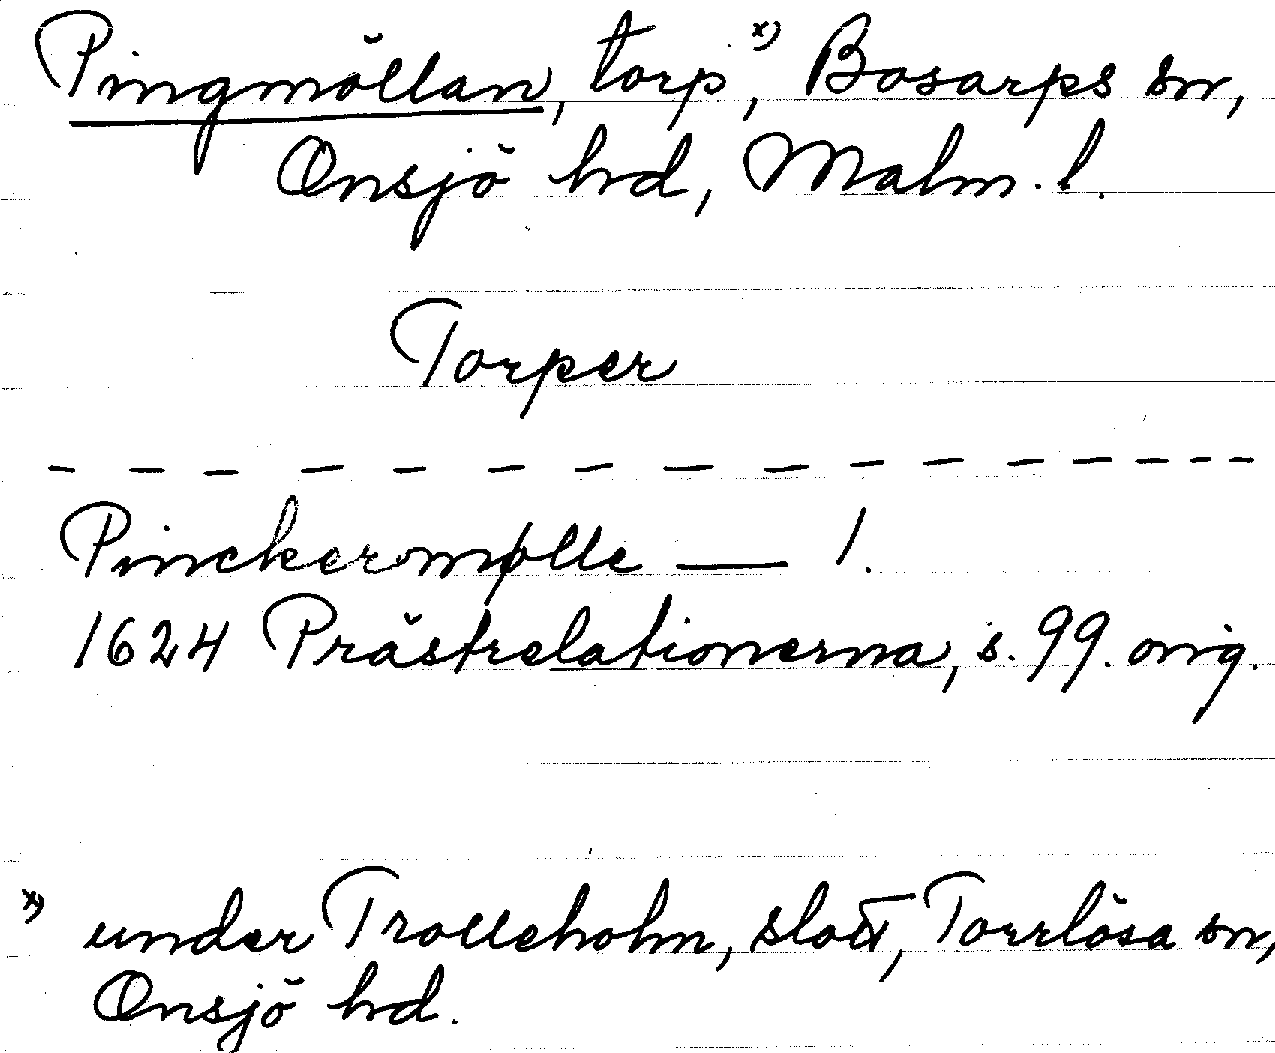 Pingmöllan, torp x), Bosarps sn,
Onsjö hd, Malm. l.
Torper
Pinckermølle — 1.
1624 Prästrelationerna, s. 99. orig.
x) under Trolleholm, slott, Torrlösa sn,
Onsjö hd.